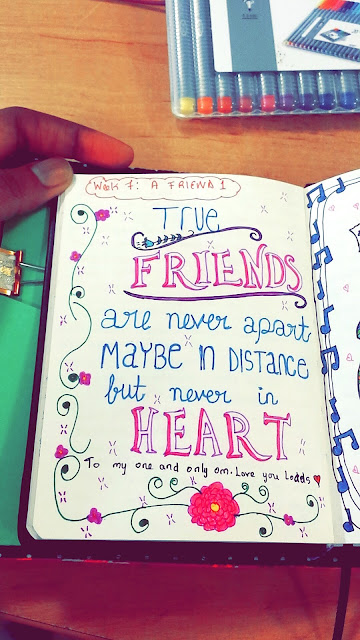 Week 7: A FRIEND 1
True
FRIENDS
are never apart
MAYBE IN DISTANCE
but never in
HEART
To my one and only om. Love you Lodds